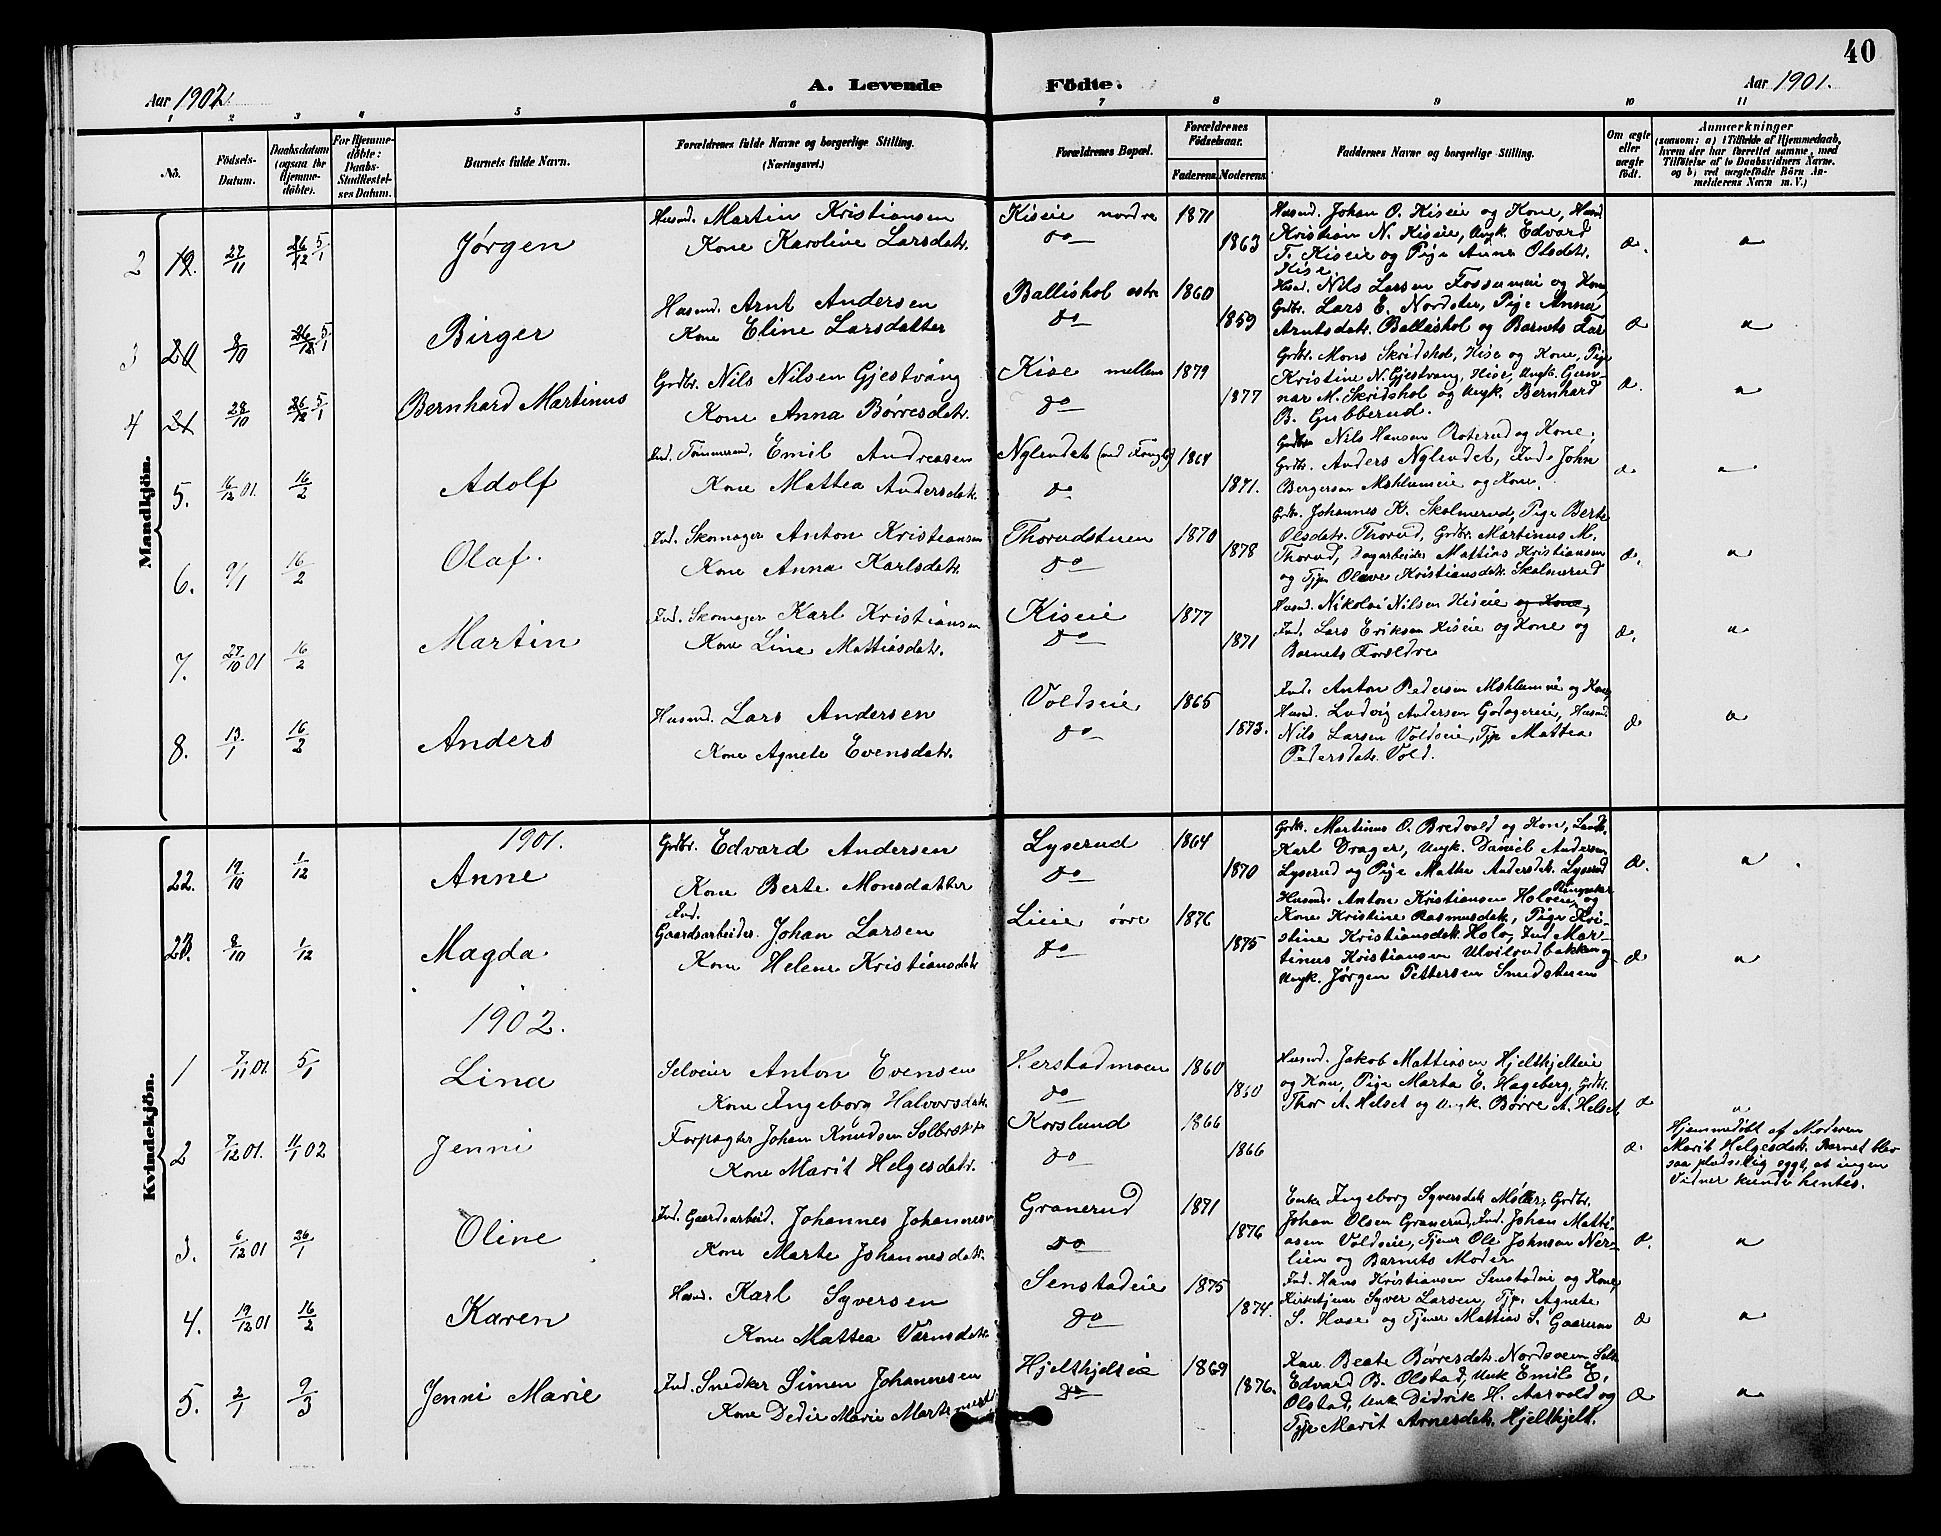 40
Aar 1902.
A. Levende Födte.
Aar 1901.
1 2 3 4 5 6 7 8 9 10 11
No.
Födsels-Datum.
Daabsdatum (ogsaa for Hjemme-döbte).
For Hjemme-döbte: Daabs-Stadfæstel-ses Datum.
Barnets fulde Navn.
Forældrenes fulde Navne og borgerlige Stilling. (Næringsvei.)
Forældrenes Bopæl.
Forældrenes Födselsaar.
Faderens. Moderens.
Faddernes Navne og borgerlige Stilling.
Om ægte eller uægte födt.
Anmærkninger
(saasom: a) i Tilfælde af Hjemmedaab, hvem der har forrettet samme, med Tilföielse af to Daabsvidners Navne. og b) ved uægtefödte Börn An-melderens Navn m. V.)
Mandkjön.
2 19. 27/11 26/12 5/1 Jørgen
Husmd. Martin Kristiansen
Kone Karoline Larsdatr.
Kiseie nordre
do
1871
1863
Husmd. Johan O. Kiseie og Kone, Husmd
Kristian N. Kiseie, Ungk. Edvard
T. Kiseie og Pige Anne Olsdatr.
Kise
æ.
3 20 8/10 26/12 5/1 Birger
Husmd. Arnt Andersen
Kone Eline Larsdatter
Ballishol østre
do
1860
1859
Husmd. Nils Larsen Fossumeie og Kone,
Grdbr. Lars E. Nordster, Pige Anna
Arntsdatr. Ballishol og Barnets Far
æ
4 21 28/10 26/12 5/1 Bernhard Martinus
Grdbr. Nils Nilsen Gjestvang
Kone Anna Børresdatr.
Kise mellem
do
1879
1877
Grdbr. Mons Skridshol, Kise og Kone, Pige
Kristine N. Gjestvang, Kise, Ungk. Gun-
nar M. Skridshol og Ungk. Bernhard
B. Gubberud.
æ.
5. 16/12 01. 16/2 Adolf
Ind. Tømmermd. Emil Andreasen
Kone Mattea Andersdatr.
Nylendet
do
1864
1871.
Grdbr. Nils Hansen Roterud og Kone,
Grdbr. Anders Nylendet, Ind. John
Bergersen Mæhlumeie og Kone.
æ
6. 9/1 16/2 Olaf.
Ind. Skomager Anton Kristiansen
Kone Anna Karlsdatr.
Thorudstuen
do
1870
1878
Grdbr. Johannes K. Skolmerud, Pige Berte
Olsdatr. Thorud, Grdbr. Martinus M.
Thorud, Dagarbeider Mattias Kristiansen
og Tjp. Olave Kristiansdatr. Skolmerud
æ.
7. 27/10 01 16/2 Martin
Ind. Skomager Karl Kristiansen
Kone Lina Mattiasdatr.
Kiseie
do
1877
1871
Husmd. Nikolai Nilsen Kiseie og Kone,
Ind. Lars Eriksen Kiseie og Kone og
Barnets Forældre
æ.
8. 13/1 16/2 Anders
Husmd. Lars Andersen
Kone Agnete Evensdatr.
Voldseie
do
1865
1873.
Ind. Anton Pedersen Mæhlumeie og Kone,
Husmd. Ludvig Andersen Godagereie, Husmd
Nils Larsen Voldseie, Tjp Mattea
Pedersdatr. Vold.
æ
Kvindekjön.
1901.
22. 19/10 1/12 Anne
Grdbr. Edvard Andersen
Kone Berte Monsdatter
Lyserud
do
1864
1870
Grdbr. Martinus O. Bredvold og Kone,
Karl Drager, Ungk. Daniel Andersen
Lyserud og Pige Mathea Andersdatr. Lyserud
æ.
23. 8/10 1/12 Magda.
Ind.
Gaardsarbeider. Johan Larsen
Kone Helene Kristiansdatr
Lieie øvre
do
1876
1875
Husmd. Anton Kristiansen Holoeie, Ringsaker og
Kone Kristine Rasmusdatr, Pige Kri-
stine Kristiansdatr. Holo, Ind Mar-
tinus Kristiansen Ulvilrudbakken og
Ungk. Jørgen Pettersen Smedstuen
æ
1902.
1 7/11 01. 5/1 Lina
Selveier Anton Evensen
Kone Ingeborg Halvorsdatr.
Herstadmoen
do
1860
1860
Husmd. Jakob Mattiasen Hjelthjelteie
og Kone, Pige Marta E. Hageberg, Grdbr.
Thor A. Helset og Ungk. Børre A. Helset
æ
2 7/12 01. 11/1 02 Jenni
Forpagter Johan Knudsen
Kone Marit Helgesdatr.
Korslund
do
1866
1866
æ.
Hjemmedøbt af Moderen
Marit Helgesdatr. Barnet blev
saa pludselig sygt, at ingen
Vidner kunde hentes.
3. 6/12 01 26/1 Oline
Ind. Gaardsarbeid. Johannes Johannesen
Kone Marte Johannesdatr.
Granerud
do
1871
1876
Enke Ingeborg Syversdatr. Møller, Grdbr.
Johan Olsen Granerud, Ind. Johan Matti-
asen Voldseie, Tjener Ole Johnsen Ner-
lien og Barnets Moder
æ.
4. 19/12 01 16/2 Karen
Husmd. Karl Syversen
Kone Mattea
Senstadeie
do
1875
1874.
Ind. Hans Kristiansen Senstadeie og Kone,
Kirketjener Syver Larsen, Tjp. Agnete
S. Huse og Tjener Mattias S. Gaarerun
æ
5. 2/1 9/3 Jenni Marie
Ind. Snedker Simen Johannesen
Kone Dedie Marie
Hjelthjelteie
do
1869
1876.
Kone Beate Børresdatr. Nordsveen
Edvard B. Olstad, Unk Emil E.
Olstad, Unk Didrik H. Aasvold og
Tjp Marit Arnesdatr. Hjelthjelt.
æ